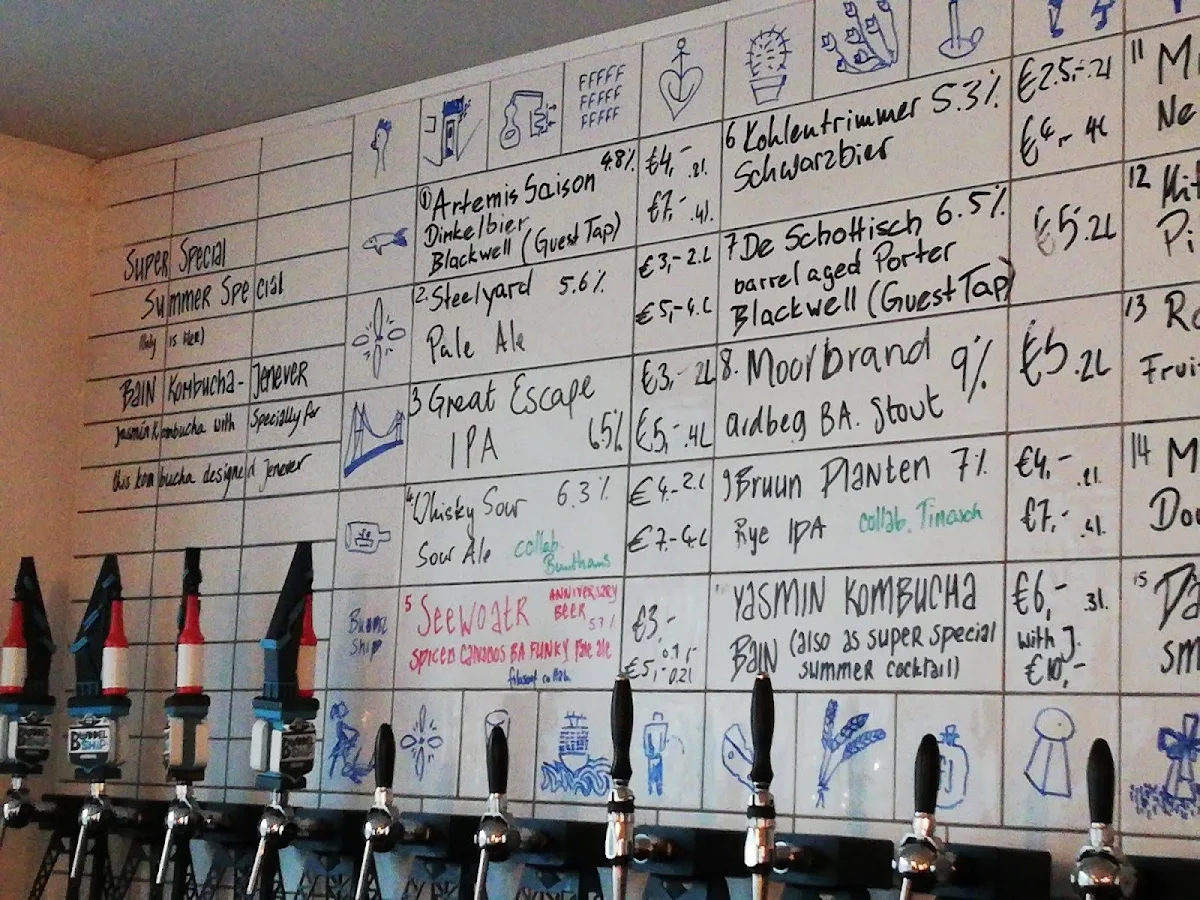 Super Special
Summer Special
BAIN Kombucha-Jenever
Kombucha with Specially for
this kombucha designed Jenever
FFFFF
FFFFF
FFFFF
① Artemis Saison 4.8%
Dinkelbier
Blackwell (Guest Tap)
€4,- .2l
€7,- .4l
2. Steelyard 5.6%
Pale Ale
€3,- 2.L
€5,- 4.L
3 Great Escape
IPA 6.5%
€3,- 2L
€5,- .4L
4 Whisky Sour 6.3%
Sour Ale collab.
€4.- 2.L
€7.- 4.L
5 SEEWOATR ANNIVERSARY
BEER
SPICED CALVADOS BA FUNKY Pale ale
collab.
€3,-
0.1L
€5,- 0.2l
6 Kohlentrimmer 5.3%
Schwarzbier
€2.5,- .2l
€4,- 4L
7 De Schottisch 6.5%
barrel aged Porter
Blackwell (Guest Tap)
€5.2L
8. Moorbrand 9%
ardbeg BA. Stout
€5 .2L
9 Bruun Planten 7%
Rye IPA collab. Tinasch
€4,- .2l
€7,- .4l
YASMIN KOMBUCHA
BAIN (also as super special
summer cocktail)
€6,- .3l.
with J.
€10,-
11 M
Ne
12
Pi
13 Ro
Frui
14 M
Dou
15
sm
BUDDEL
SHIP